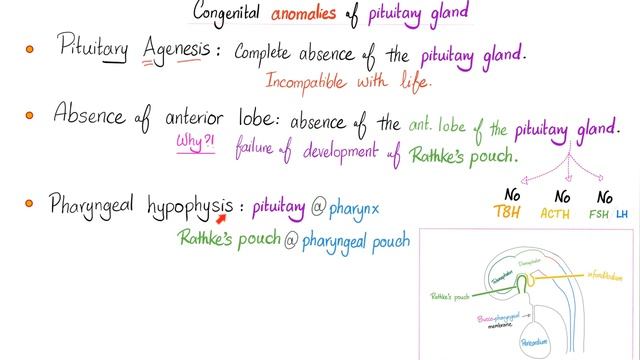 Congenital anomalies of pituitary gland
Pituitary Agenesis: Complete absence of the pituitary gland.
Incompatible with life.
Absence of anterior lobe: absence of the ant. lobe of the pituitary gland.
Why?! failure of development of Rathke's pouch.
No No No
TSH ACTH FSH LH
Pharyngeal hypophysis: pituitary @ pharynx
Rathke's pouch @ pharyngeal pouch
Diencephalon
Telencephalon
infundibulum
Rathke's pouch
Bucco-pharyngeal
membrane
Pericardium